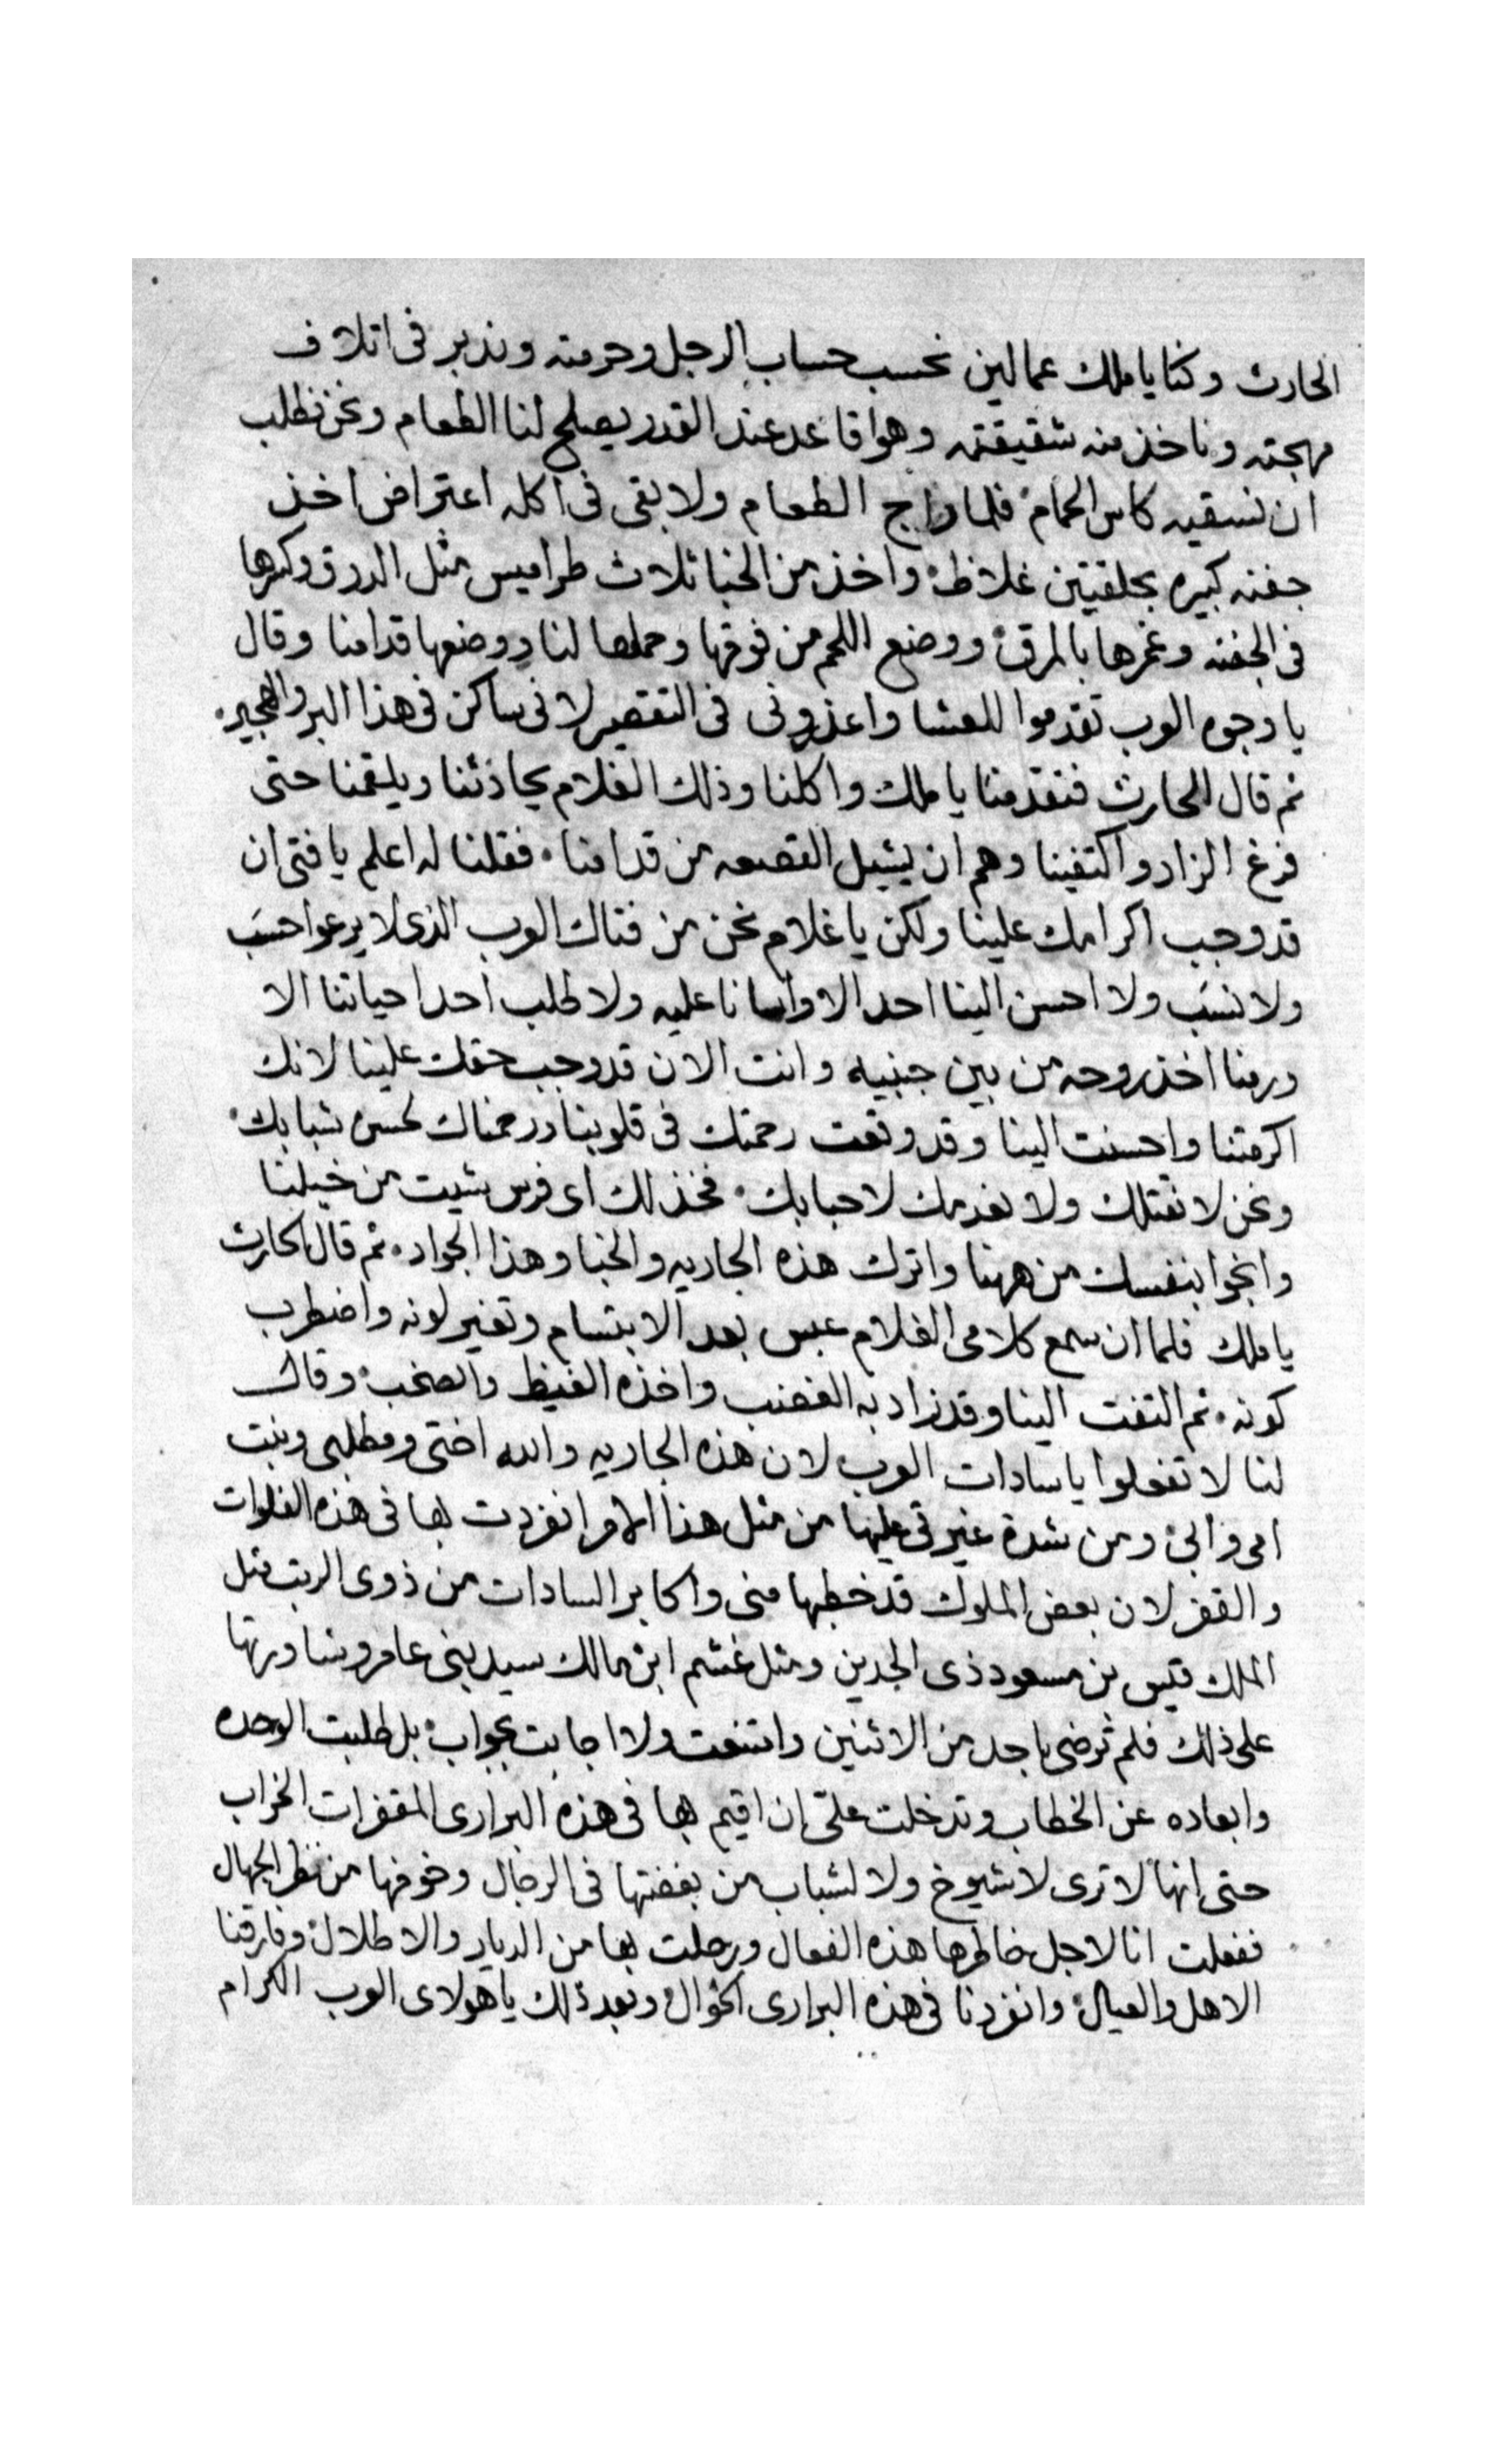 الحارث وكنا يا ملك عمالين نحسب حساب الرجل وحرمته وندبر فى اتلاف
مهجته وناخذ منه شقيقته وهوا قاعد عند القدر يصلح لنا الطعام ونحن نطلب
ان نسقيه كاس الحمام فلما راج الطعام ولا بقى فى اكله اعتراض اخذ
جفنه كبيره بحلقتين غلاظ واخذ من الخبا ثلاث طراميس مثل الدرق وكسرها
فى الجفنه وغمرها بالمرق ووضع اللحم من فوقها وحملها لنا ووضعها قدامنا وقال
يا وجوه العرب تقدموا للعشا واعذرونى فى التقصير لانى ساكن فى هذا البر والهجير
ثم قال الحارث فتقدمنا يا ملك واكلنا وذلك الغلام يحادثنا ويلقمنا حتى
فرغ الزاد واكتفينا وهم ان يشيل القصعه من قدامنا فقلنا له اعلم يا فتى ان
قد وجب اكرامك علينا ولكن يا غلام نحن من فتاك العرب الذى لا يرعوا حسب
ولا نسب ولا احسن الينا احد الا واسانا عليه ولا طلب احدا حياتنا الا
ورمنا اخذ روحه من بين جنبيه وانت الان قد وجب حقك علينا لانك
اكرمتنا واحسنت الينا وقد وقعت رحمتك فى قلوبنا ورحمناك لحسن شبابك
ونحن لا نقتلك ولا نعدمك لاحبابك فخذ لك اى فرس شيت من خيلنا
وانجوا بنفسك من ههنا واترك هذه الجاريه والخبا وهذا الجواد ثم قال الحارث
يا ملك فلما ان سمع كلامى الغلام عبس بعد الابتسام وتغير لونه واضطرب
كونه ثم التفت الينا وقد زاد به الغضب واخذه الغيظ والصخب وقال
لنا لا تفعلوا يا سادات العرب لان هذه الجاريه والله اختى ومطلبى وبنت
امى وابى ومن شدة غيرتى عليها من مثل هذا الامر انفردت بها فى هذه الفلوات
والقفر لان بعض الملوك قد خطبها منى واكابر السادات من ذوى الرتب مثل
الملك قيس بن مسعود ذى الجدين ومثل غشم ابن مالك سيد بنى عامر وشاورتها
على ذلك فلم ترضى باحد من الاثنين وامتنعت ولا اجابت بجواب بل طلبت الوحده
وابعاده عن الخطاب وتدخلت علىّ ان اقيم بها فى هذه البرارى المقفرات الخراب
حتى انها لا ترى لا شيوخ ولا لشباب من بغضتها فى الرجال وخوفها من نظر الجهال
ففعلت انا لاجل خاطرها هذه الفعال ورحلت بها من الديار والاطلال وفارقنا
الاهل والعيال وانفردنا فى هذه البرارى الخوال وبعد ذلك يا هولاى العرب الكرام